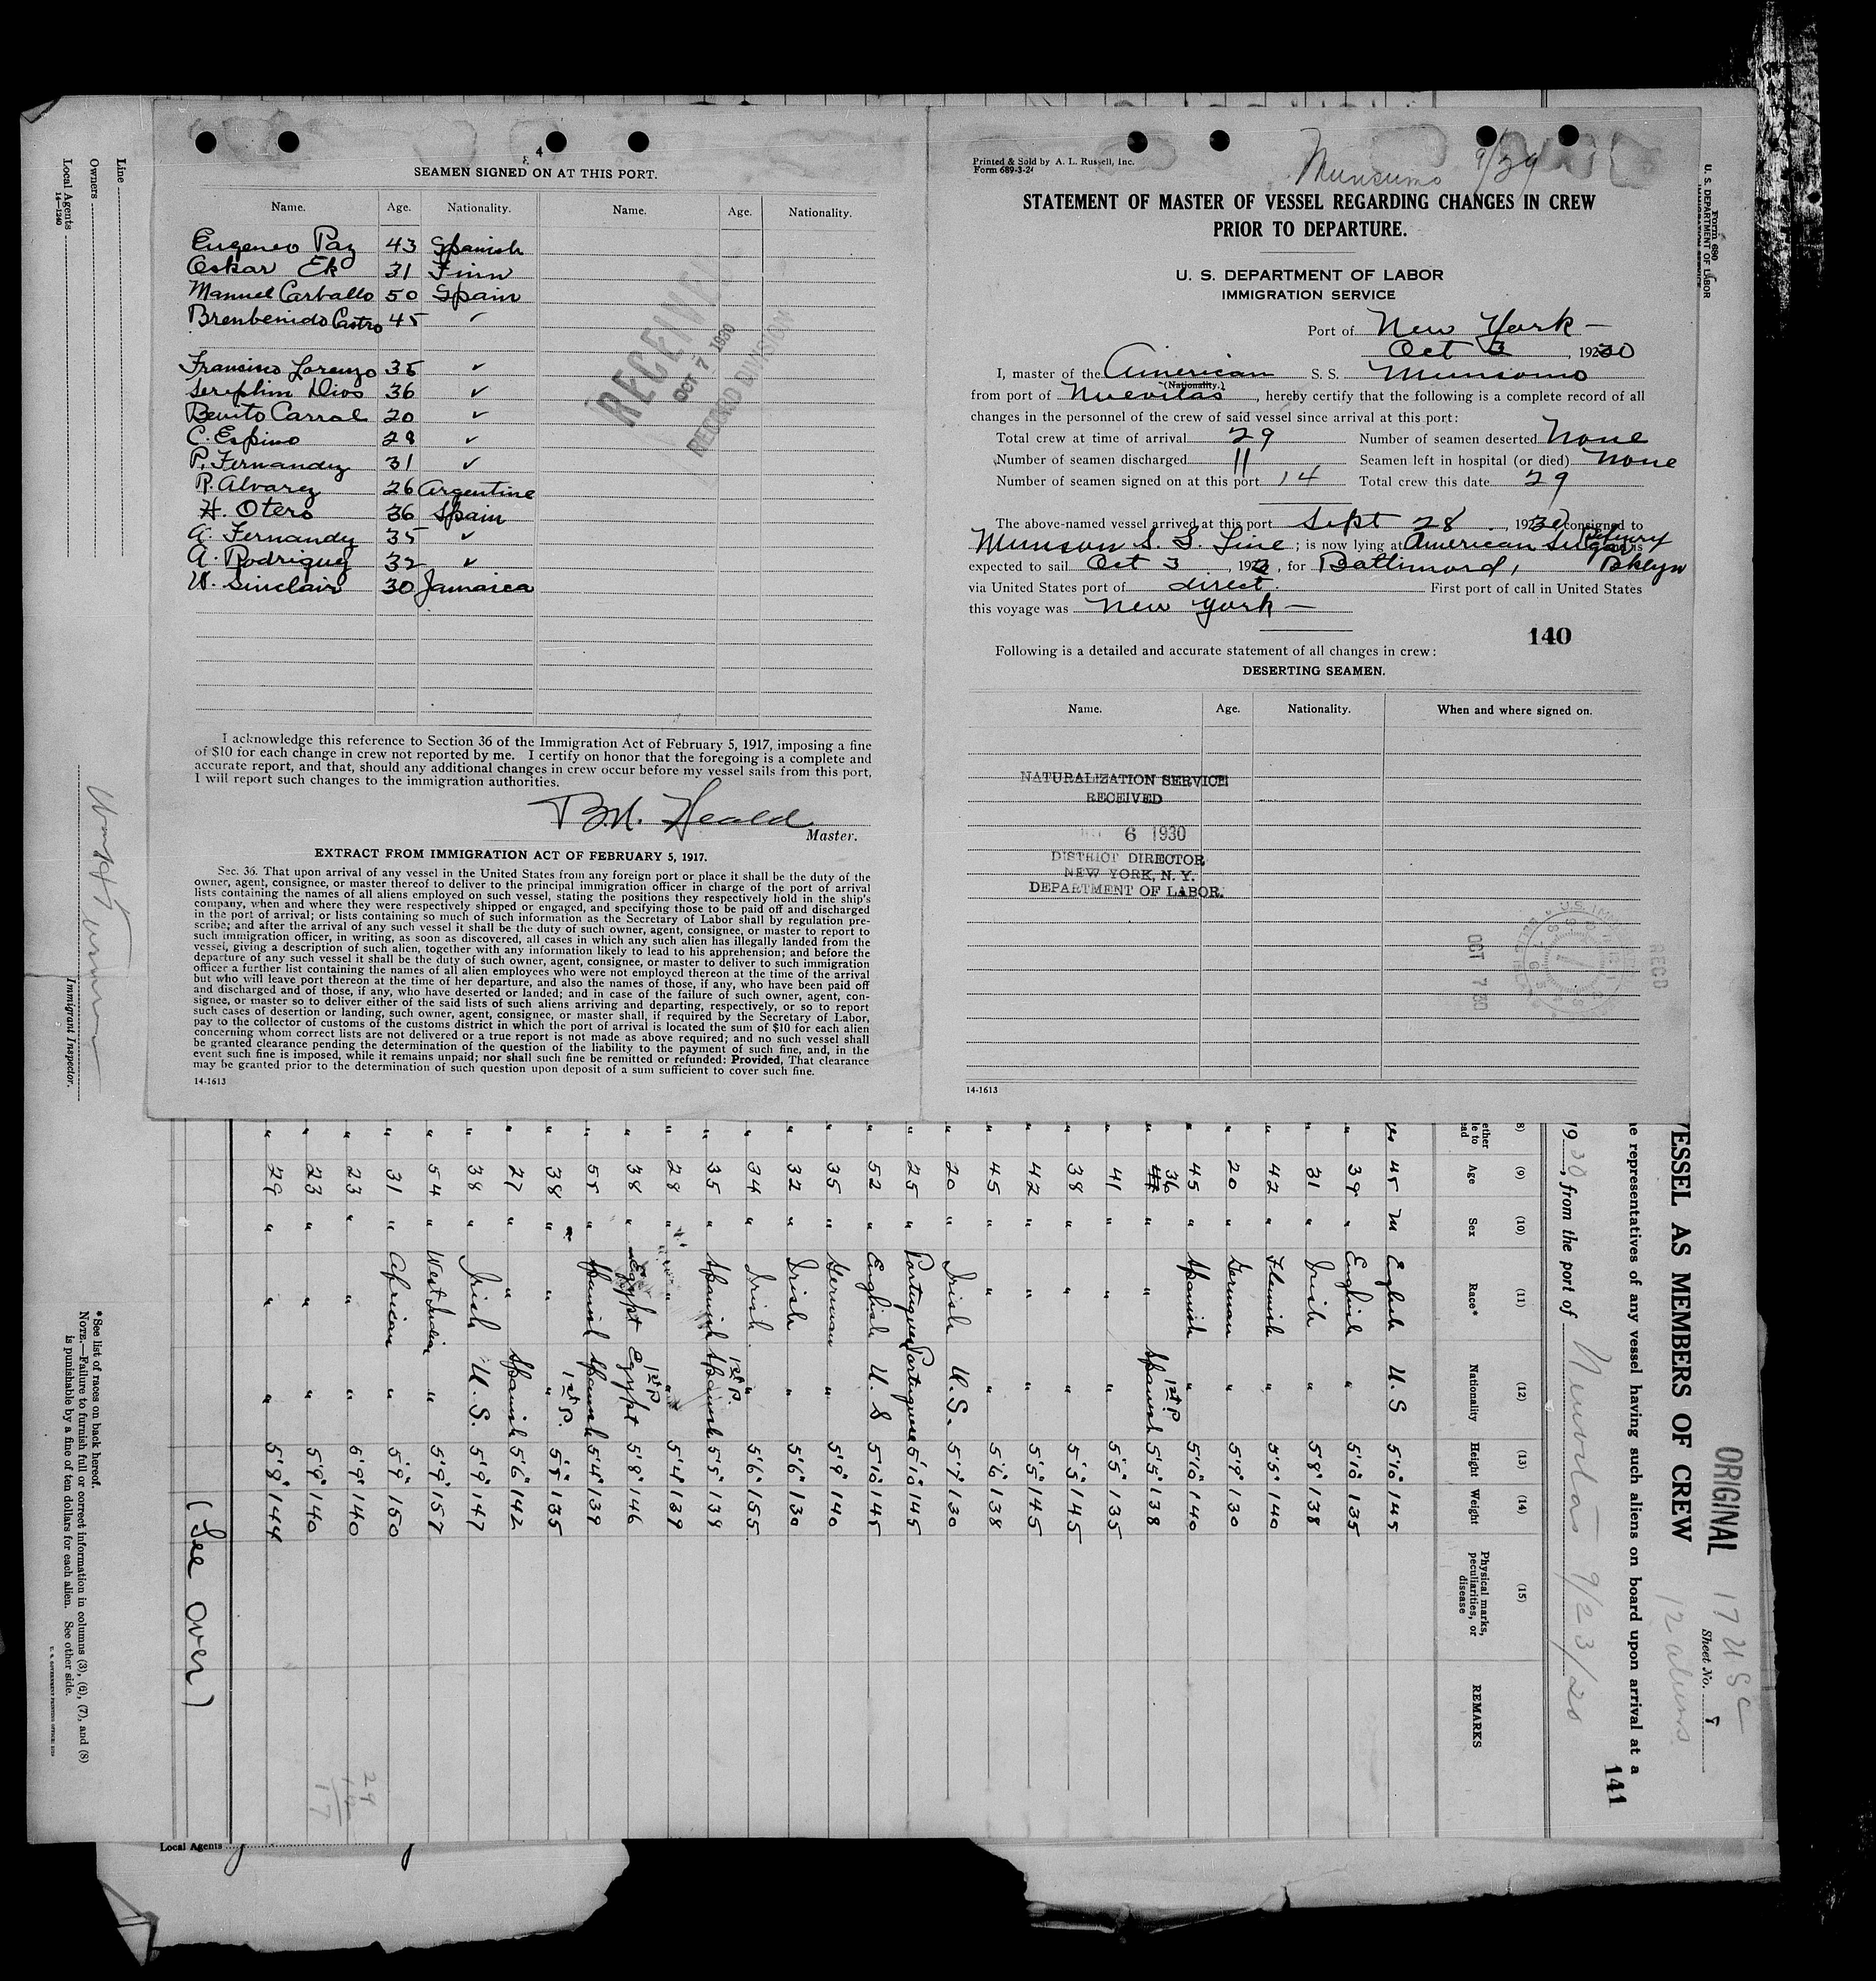 4
SEAMEN SIGNED ON AT THIS PORT.
Name. Age. Nationality. Name. Age. Nationality.
Eugeneo Paz 43 Spanish
Oskar Ek 31 Finn
Manuel Carballo 50 Spain
Brenbenido Castro 45 ✓
Francisco Lorenzo 35 ✓
Seraphin Dios 36 ✓
Benito Carral 20 ✓
C. Espino 28 ✓
P. Fernandez 31 ✓
R. Alvarez 26 Argentine
H. Otero 36 Spain
A. Fernandez 35 ✓
A. Rodriguez 32 ✓
W. Sinclair 30 Jamaica
RECEIVED
OCT 7 1930
RECORD DIVISION
I acknowledge this reference to Section 36 of the Immigration Act of February 5, 1917, imposing a fine
of $10 for each change in crew not reported by me. I certify on honor that the foregoing is a complete and
accurate report, and that, should any additional changes in crew occur before my vessel sails from this port,
I will report such changes to the immigration authorities.
B.M. Heald
Master.
EXTRACT FROM IMMIGRATION ACT OF FEBRUARY 5, 1917.
Sec. 36. That upon arrival of any vessel in the United States from any foreign port or place it shall be the duty of the
owner, agent, consignee, or master thereof to deliver to the principal immigration officer in charge of the port of arrival
lists containing the names of all aliens employed on such vessel, stating the positions they respectively hold in the ship's
company, when and where they were respectively shipped or engaged, and specifying those to be paid off and discharged
in the port of arrival; or lists containing so much of such information as the Secretary of Labor shall by regulation pre-
scribe; and after the arrival of any such vessel it shall be the duty of such owner, agent, consignee, or master to report to
such immigration officer, in writing, as soon as discovered, all cases in which any such alien has illegally landed from the
vessel, giving a description of such alien, together with any information likely to lead to his apprehension; and before the
departure of any such vessel it shall be the duty of such owner, agent, consignee, or master to deliver to such immigration
officer a further list containing the names of all alien employees who were not employed thereon at the time of the arrival
but who will leave port thereon at the time of her departure, and also the names of those, if any, who have been paid off
and discharged and of those, if any, who have deserted or landed; and in case of the failure of such owner, agent, con-
signee, or master so to deliver either of the said lists of such aliens arriving and departing, respectively, or so to report
such cases of desertion or landing, such owner, agent, consignee, or master shall, if required by the Secretary of Labor,
pay to the collector of customs of the customs district in which the port of arrival is located the sum of $10 for each alien
concerning whom correct lists are not delivered or a true report is not made as above required; and no such vessel shall
be granted clearance pending the determination of the question of the liability to the payment of such fine, and, in the
event such fine is imposed, while it remains unpaid; nor shall such fine be remitted or refunded: Provided, That clearance
may be granted prior to the determination of such question upon deposit of a sum sufficient to cover such fine.
14-1613
Printed & Sold by A. L. Russell, Inc.
Form 689-3-24
Munsomo 9/29
STATEMENT OF MASTER OF VESSEL REGARDING CHANGES IN CREW
PRIOR TO DEPARTURE.
U. S. DEPARTMENT OF LABOR
IMMIGRATION SERVICE
Port of New York
Oct 3, 1930
I, master of the American S. S. Munsomo
(Nationality.)
from port of Nuevitas, hereby certify that the following is a complete record of all
changes in the personnel of the crew of said vessel since arrival at this port:
Total crew at time of arrival 29 Number of seamen deserted None
Number of seamen discharged 11 Seamen left in hospital (or died) None
Number of seamen signed on at this port 14 Total crew this date 29
The above-named vessel arrived at this port Sept 28, 1930 consigned to
Munson S. S. Line; is now lying at American Sugar Refinery is
expected to sail Oct 3, 192 , for Baltimore, Bklyn
via United States port of direct. First port of call in United States
this voyage was New York
140
Following is a detailed and accurate statement of all changes in crew:
DESERTING SEAMEN.
Name. Age. Nationality. When and where signed on.
NATURALIZATION SERVICE
RECEIVED
6 1930
DISTRICT DIRECTOR
NEW YORK, N. Y.
DEPARTMENT OF LABOR.
OCT 7 30
REC'D
14-1613
Form 680
U. S. DEPARTMENT OF LABOR
Line
Owners
Local Agents
14-1240
Immigrant Inspector.
ORIGINAL
17 USC
12 aliens
Sheet No.
141
VESSEL AS MEMBERS OF CREW
representatives of any vessel having such aliens on board upon arrival at a
1930, from the port of Nuevitas 9/23/30
(9) (10) (11) (12) (13) (14) (15)
Age Sex Race* Nationality Height Weight Physical marks, peculiarities, or disease REMARKS
yes 45 M English U.S 5'10" 145
" 39 " English " 5'10" 135
" 31 " Irish " 5'8" 138
" 42 " Flemish " 5'5" 140
" 20 " German " 5'9" 130
" 45 " Spanish " 5'10" 140
" 36 " " Spanish 1st P. 5'5" 138
" 41 " " " 5'5" 135
" 38 " " " 5'5" 145
" 42 " " " 5'5" 145
" 45 " " " 5'6" 138
" 20 " Irish U.S. 5'7" 130
" 25 " Portuguese Portuguese 5'10" 145
" 52 " English U.S 5'10" 145
" 35 " German " 5'9" 140
" 32 " Irish " 5'6" 130
" 34 " Irish " 5'6" 155
" 35 " Spanish Spanish 1st P. 5'5" 138
" 28 " " " 5'4" 139
" 38 " Egypt Egypt 1st P. 5'8" 146
" 55 " Spanish Spanish 5'4" 139
" 38 " " " 1st P. 5'5" 135
" 27 " " Spanish 5'6" 142
" 38 " Irish U.S. 5'9" 147
" 54 " West Indian " 5'9" 157
" 31 " African " 5'9" 150
" 23 " " " 6'9" 140
" 23 " " " 5'9" 140
" 29 " " " 5'8" 144
29
12
17
(See over)
*See list of races on back hereof.
NOTE.—Failure to furnish full or correct information in columns (3), (6), (7), and (8)
is punishable by a fine of ten dollars for each alien. See other side.
U. S. GOVERNMENT PRINTING OFFICE
Local Agents